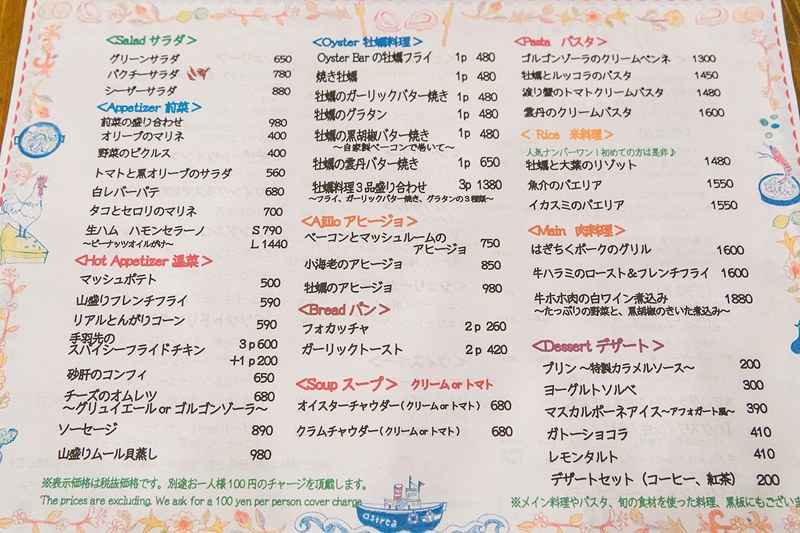 <Salad サラダ>
グリーンサラダ 650
パクチーサラダ 780
シーザーサラダ 880
<Appetizer 前菜>
前菜の盛り合わせ 980
オリーブのマリネ 400
野菜のピクルス 400
トマトと黒オリーブのサラダ 560
白レバーパテ 680
タコとセロリのマリネ 700
生ハム ハモンセラーノ S 790
～ピーナッツオイルがけ～ L 1440
<Hot Appetizer 温菜>
マッシュポテト 500
山盛りフレンチフライ 590
リアルとんがりコーン 590
手羽先の
スパイシーフライドチキン 3p 600
+1p 200
砂肝のコンフィ 650
チーズのオムレツ 680
～グリュイエール or ゴルゴンゾーラ～
ソーセージ 890
山盛りムール貝蒸し 980
※表示価格は税抜価格です。別途お一人様100円のチャージを頂戴します。
The prices are excluding. We ask for a 100 yen per person cover charge
<Oyster 牡蠣料理>
Oyster Barの牡蠣フライ 1p 480
焼き牡蠣 1p 480
牡蠣のガーリックバター焼き 1p 480
牡蠣のグラタン 1p 480
牡蠣の黒胡椒バター焼き 1p 480
～自家製ベーコンで巻いて～
牡蠣の雲丹バター焼き 1p 650
牡蠣料理3品盛り合わせ 3p 1380
～フライ、ガーリックバター焼き、グラタンの3種類～
<Ajillo アヒージョ>
ベーコンとマッシュルームの
アヒージョ 750
小海老のアヒージョ 850
牡蠣のアヒージョ 980
<Bread パン>
フォカッチャ 2p 260
ガーリックトースト 2p 420
<Soup スープ> クリーム or トマト
オイスターチャウダー(クリーム or トマト) 680
クラムチャウダー(クリーム or トマト) 680
astrea
<Pasta パスタ>
ゴルゴンゾーラのクリームペンネ 1300
牡蠣とルッコラのパスタ 1450
渡り蟹のトマトクリームパスタ 1480
雲丹のクリームパスタ 1600
<Rice 米料理>
人気ナンバーワン!初めての方は是非♪
牡蠣と大葉のリゾット 1480
魚介のパエリア 1550
イカスミのパエリア 1550
<Main 肉料理>
はぎちくポークのグリル 1600
牛ハラミのロースト&フレンチフライ 1600
牛ホホ肉の白ワイン煮込み 1880
～たっぷりの野菜と、黒胡椒のきいた煮込み～
<Dessert デザート>
プリン ～特製カラメルソース～ 200
ヨーグルトソルベ 300
マスカルポーネアイス～アフォガート風～ 390
ガトーショコラ 410
レモンタルト 410
デザートセット (コーヒー、紅茶) 200
※メイン料理やパスタ、旬の食材を使った料理、黒板にもござい